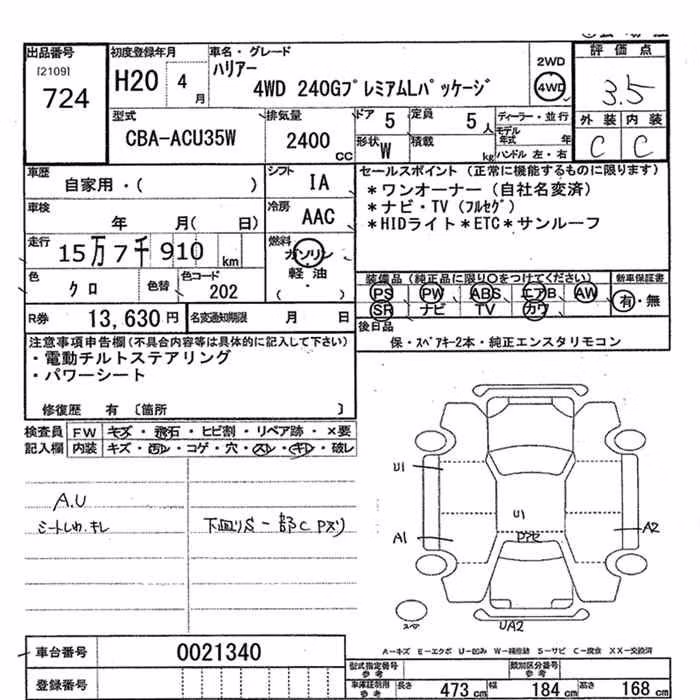 出品番号
[2109]
724
初度登録年月
H20 4月
車名・グレード
ハリアー
4WD 240GプレミアムLパッケージ
2WD
4WD
評価点
3.5
外装 内装
C C
型式
CBA-ACU35W
排気量
2400 CC
ドア 5
定員 5人
形状 W
積載 kg
ディーラー・並行
モデル年式 年
ハンドル 左・右
車歴
自家用・( )
シフト
IA
セールスポイント (正常に機能するものに限ります)
*ワンオーナー (自社名変済)
*ナビ・TV (フルセグ)
*HIDライト*ETC*サンルーフ
車検
年 月( 日)
冷房
AAC
走行
15万7千910 km
燃料
ガソリン
軽油
( ・ )
色
クロ
色替
色コード
202
装備品 (純正品に限り○をつけてください)
PS PW ABS エアB AW
SR ナビ TV カワ
新車保証書
有・無
R券 13,630円
名変通知期限 月 日
後日品
保・スペアキー2本・純正エンスタリモコン
注意事項申告欄(不具合内容等は具体的に記入して下さい)
・電動チルトステアリング
・パワーシート
修復歴 有 〔箇所 〕
検査員
記入欄
FW キズ・飛石・ヒビ割・リペア跡・×要
内装 キズ・汚レ・コゲ・穴・スレ・キレ・破レ
A.U
シートしわ、キレ
下廻りS 一部C Pズリ
U1
A1
U1
A2
UA2
スペア
A−キズ E−エクボ U−凹み W−補修跡 S−サビ C−腐食 XX−交換済
車台番号 0021340
登録番号
型式指定番号
参考
類別区分番号
参考
車庫証明用
参考
長さ 473cm 幅 184cm 高さ 168cm